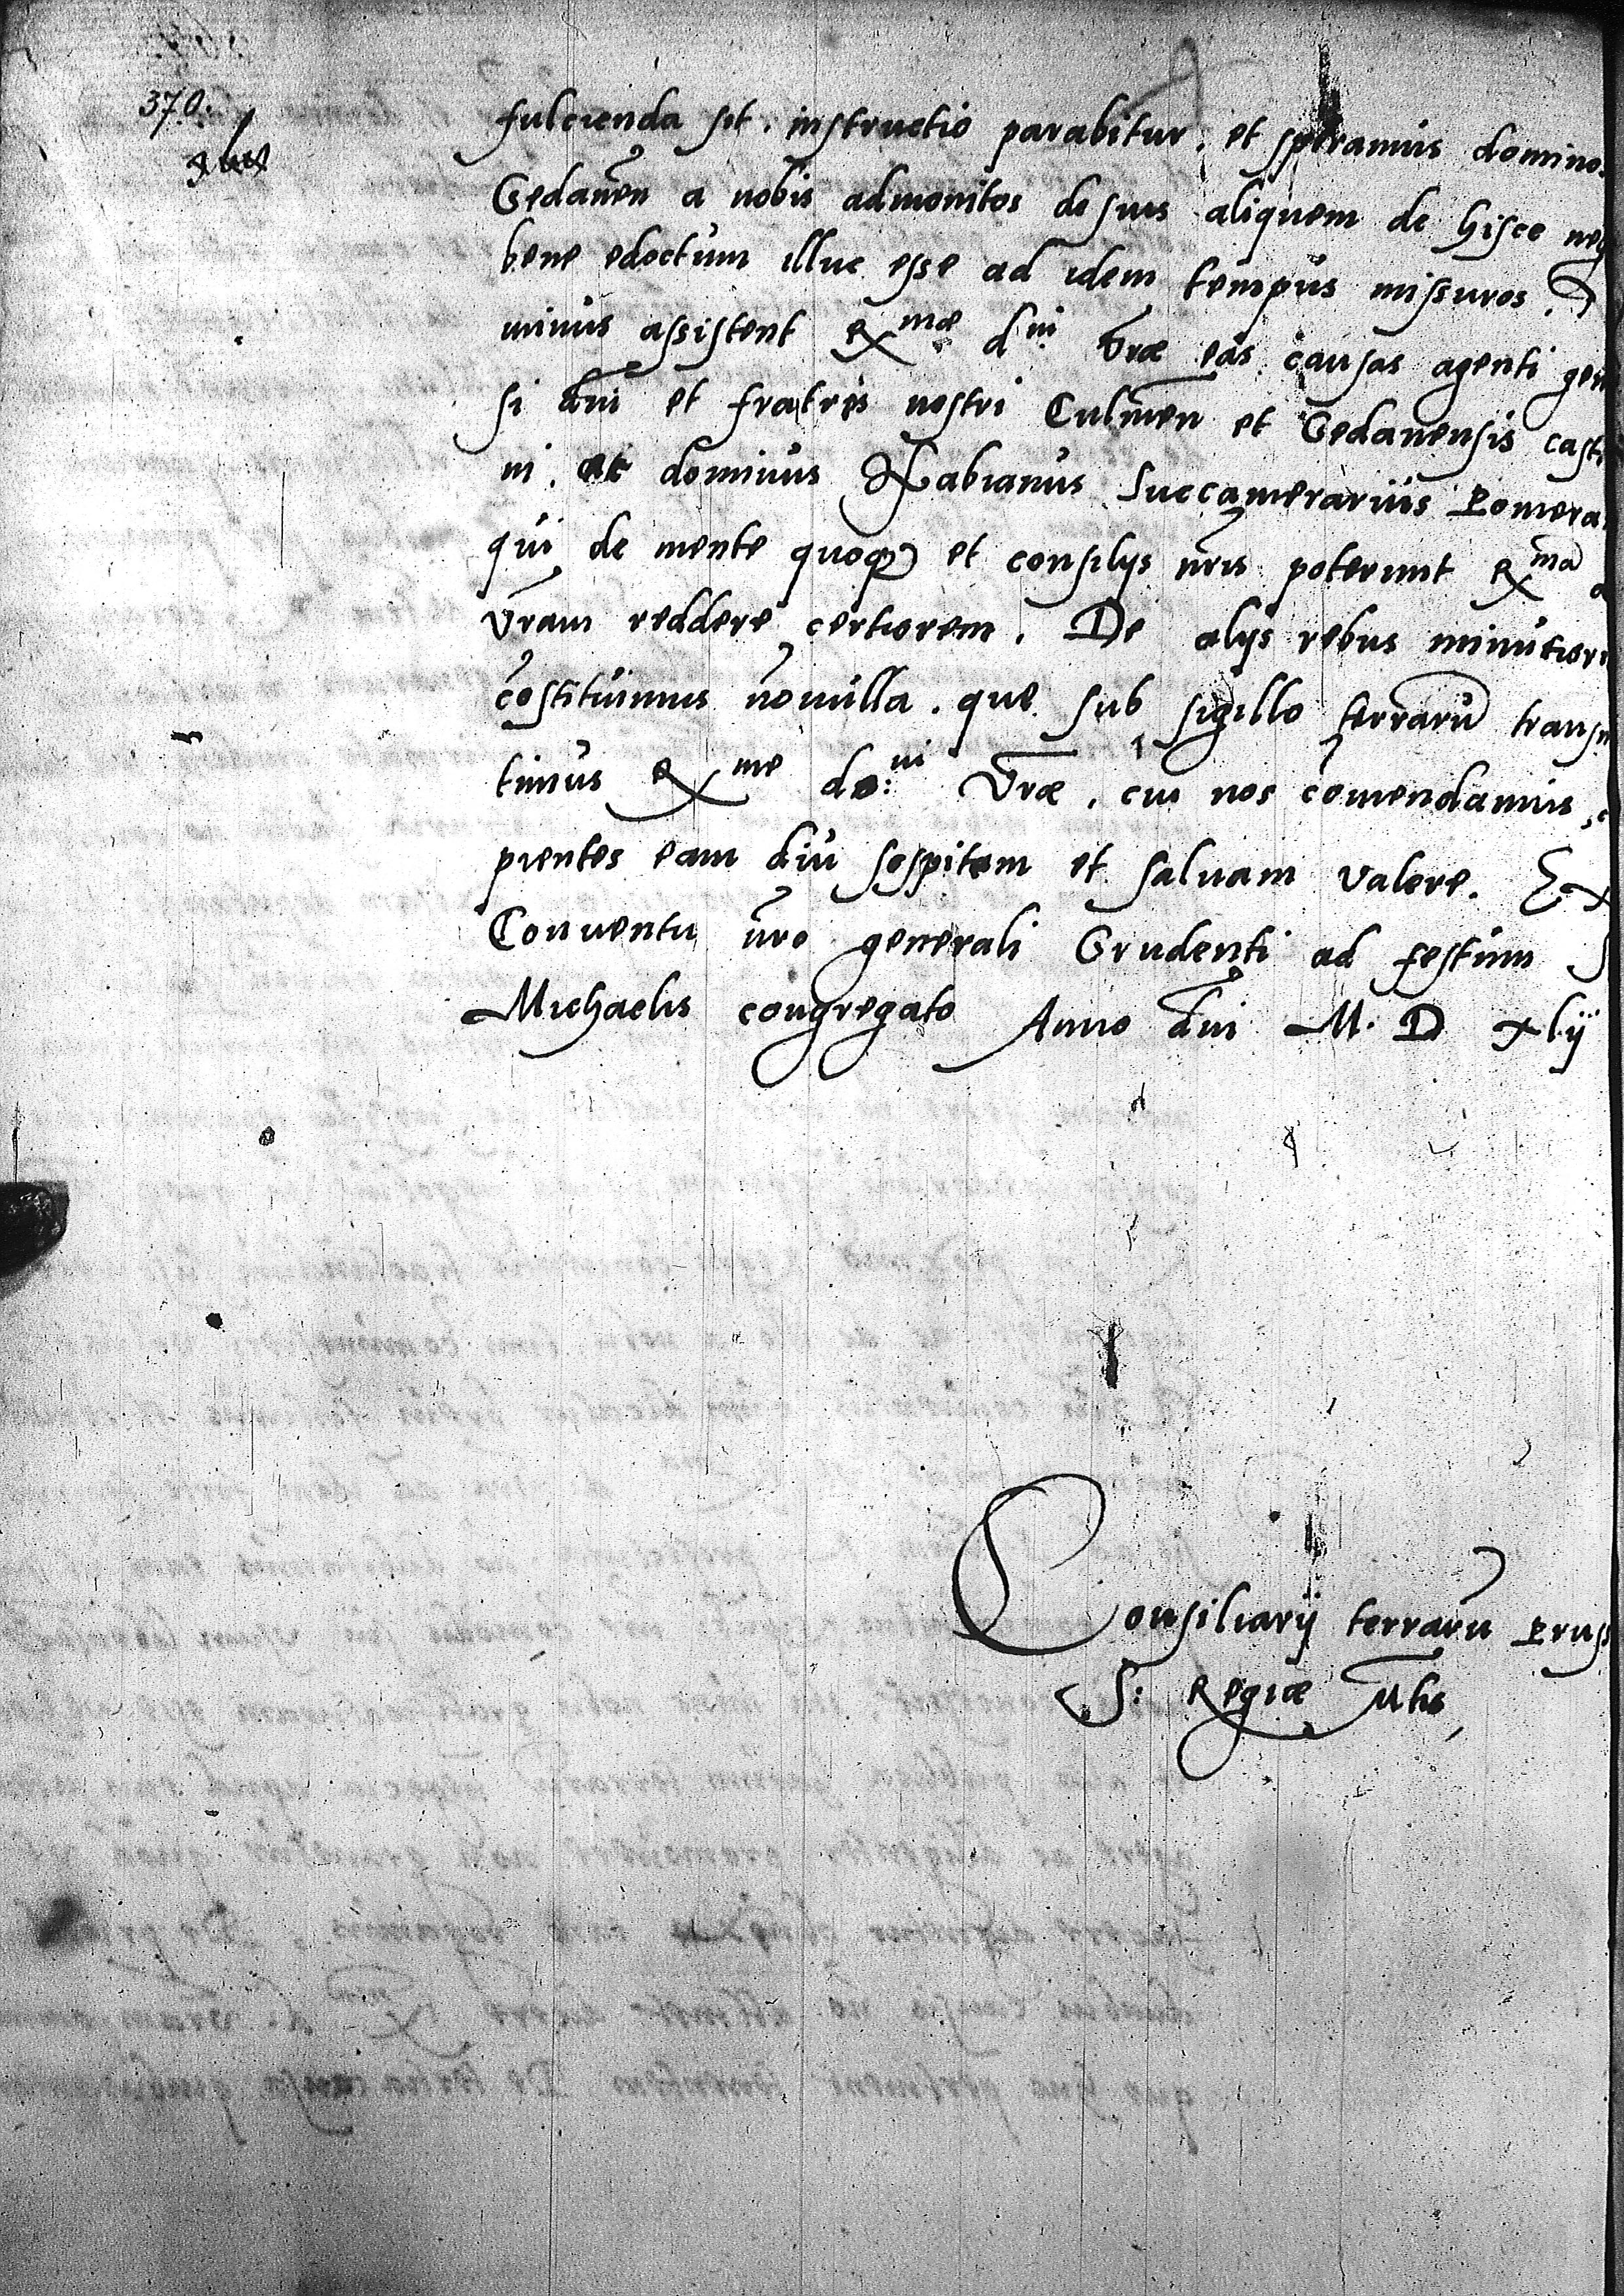 370.
fulcienda sit. instructio parabitur. et speramus dominos
Gedanen̄ a nobis admonitos de suis aliquem de hisce neg
bene edoctum illuc esse ad idem tempus missuros.
minus assistent Rxmæ dni Vr̄æ eas causas agenti gen
si dn̄i et fratres nostri Culmen̄ et Gedanensis cast
ni. ac dominus Fabianus Succamerarius Pomera
qui de mente quoq et consilijs nr̄is poterunt Rxma
Vr̄am reddere certiorem. De alijs rebus minutiori
cōstituimus nōnulla. que sub sigillo terrarū trans
timus Rxme do:ni Vr̄æ. cui nos cōmendamus
pientes eam diu sospitem et saluam valere. Ex
Conuentu nr̄o generali Grudenti ad festum S
Michaelis congregato Anno dn̄i M. D xlij
Consiliarij terrarū Pruss
S: Regiæ Mtis